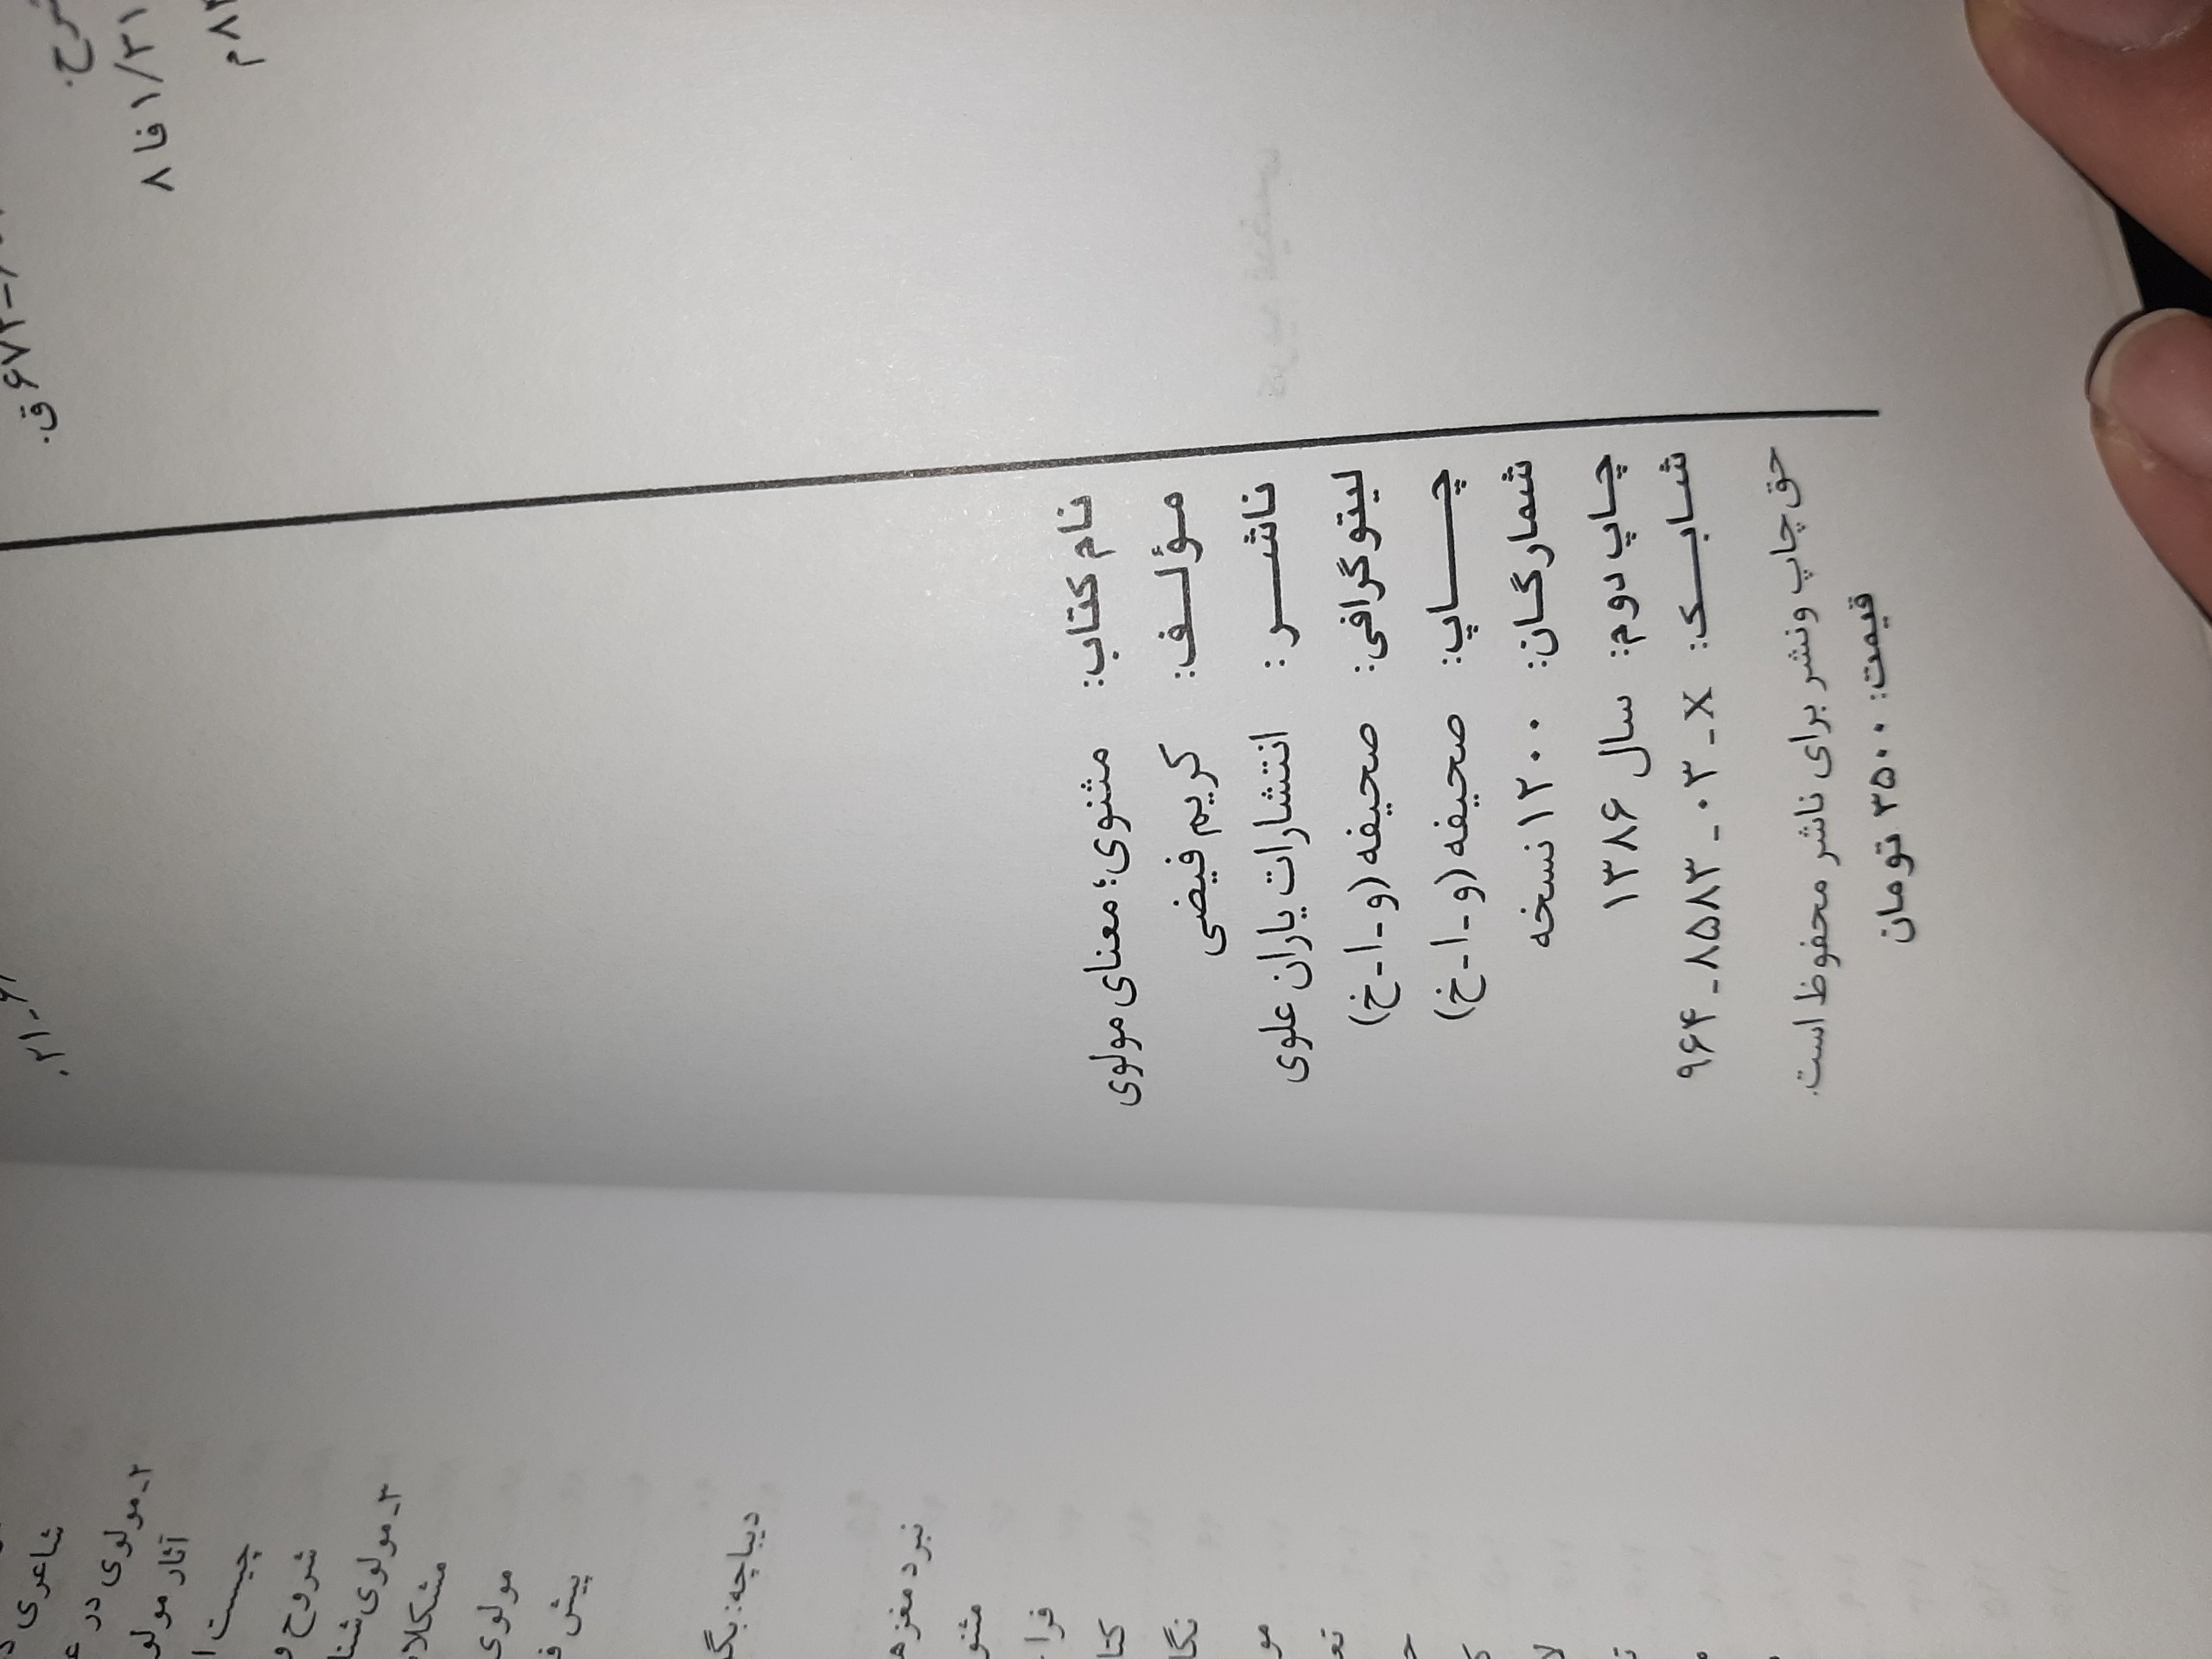 شرح.
۸فا۱/۳۱
ق.
نام کتاب: مثنوی؛ معنای مولوی
مؤلف: کریم فیضی
ناشر: انتشارات یاران علوی
لیتوگرافی: صحیفه (و-ا-خ)
چاپ: صحیفه (و-ا-خ)
شمارگان: ۱۲۰۰ نسخه
چاپ دوم: سال ۱۳۸۶
شابک: X-۰۳-۸۵۸۳-۹۶۴
حق چاپ ونشر برای ناشر محفوظ است.
قیمت: ۳۵۰۰ تومان
شاعری
۲-مولوی در
آثار
چیست
شروح و
مولوی
دیباچه:
نبرد